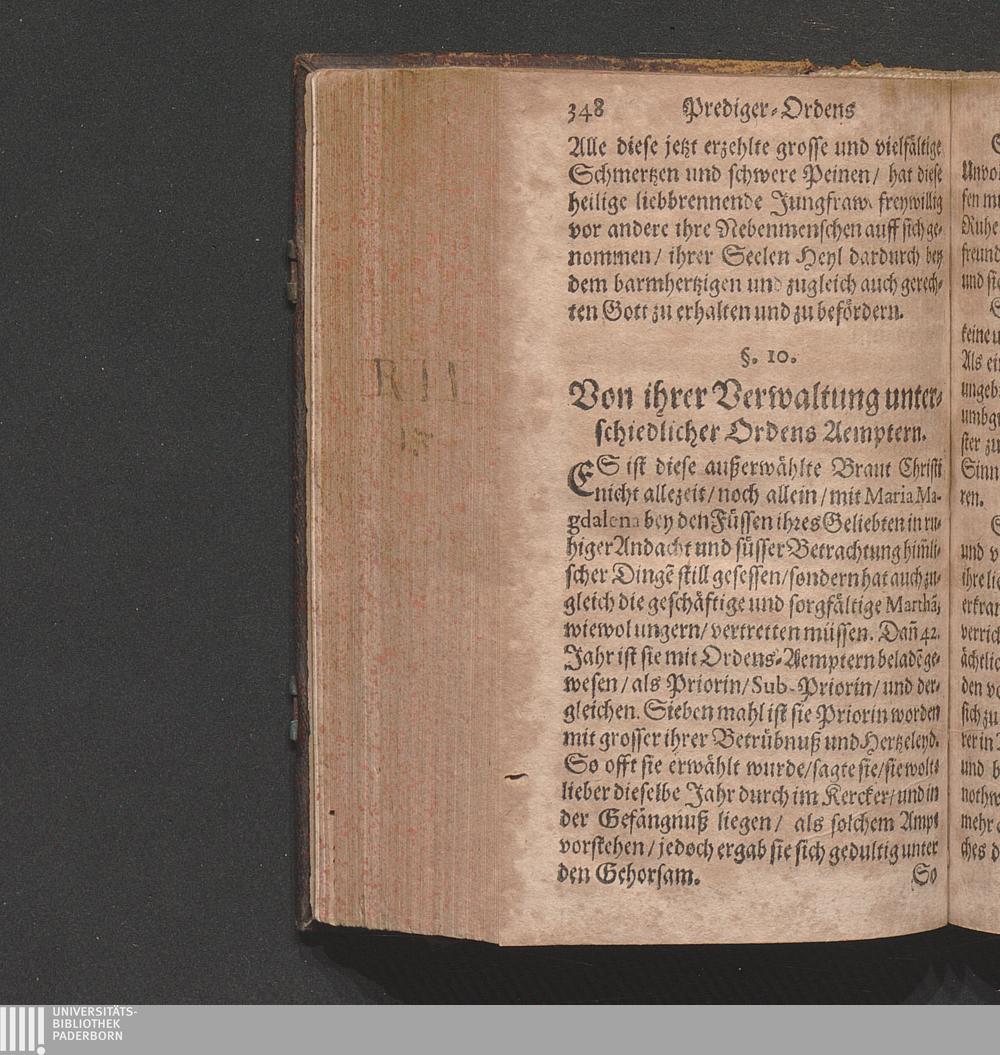 348 Prediger-Ordens
Alle diese jetzt erzehlte grosse und vielfältige
Schmertzen und schwere Peinen / hat diese
heilige liebbrennende Jungfraw freywillig
vor andere ihre Nebenmenschen auff sich ge-
nommen / ihrer Seelen Heyl dardurch bey
dem barmhertzigen und zugleich auch gerech-
ten Gott zu erhalten und zu befördern.
§. 10.
Von ihrer Verwaltung unter-
schiedlicher Ordens Aemptern.
ES ist diese außerwählte Braut Christi
nicht allezeit / noch allein / mit Maria Ma-
gdalena bey den Füssen ihres Geliebten in ru-
higer Andacht und süsser Betrachtung him̃li-
scher Dingẽ still gesessen / sondern hat auch zu-
gleich die geschäftige und sorgfältige Marthã,
wiewol ungern / vertretten müssen. Dañ 42.
Jahr ist sie mit Ordens-Aemptern beladẽ ge-
wesen / als Priorin / Sub-Priorin / und der-
gleichen. Sieben mahl ist sie Priorin worden
mit grosser ihrer Betrübnuß und Hertzeleyd.
So offt sie erwählt wurde / sagte sie / sie wolte
lieber dieselbe Jahr durch im Kercker / und in
der Gefängnuß liegen / als solchem Ampt
vorstehen / jedoch ergab sie sich gedultig unter
den Gehorsam. So
Ruhe
freund
und sie
keine u
Als ei
ungeb
umbg
ster zu
Sinn
ren.
und v
ihre lie
erkran
verrich
ächtlic
den vo
sich zu
rer in
und b
nothw
mehr
ches d
R 11
UNIVERSITÄTS-
BIBLIOTHEK
PADERBORN